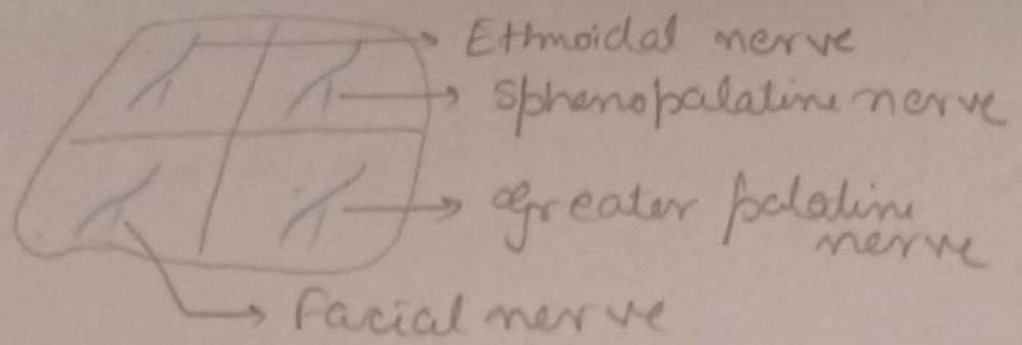 Ethmoidal nerve
Sphenopalatine nerve
Greater palatine
nerve
Facial nerve